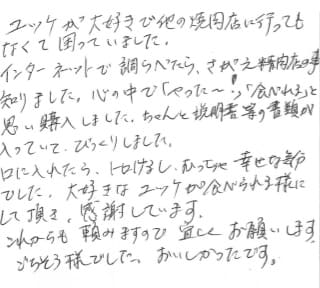 ユッケが大好きで他の焼肉店に行っても
なくて困っていました。
インターネットで調らべたら、さかえ精肉店の事
知りました。心の中で「やった〜!」「食べれる」と
思い購入しました。ちゃんと説明書等の書類が
入っていて、びっくりしました。
口に入れたら、トロけるし、むっちゃ幸せな気分
でした。大好きなユッケが食べられる様に
して頂き、感謝しています。
これからも頼みますので宜しくお願いします
ごちそう様でしたっおいしかったです。